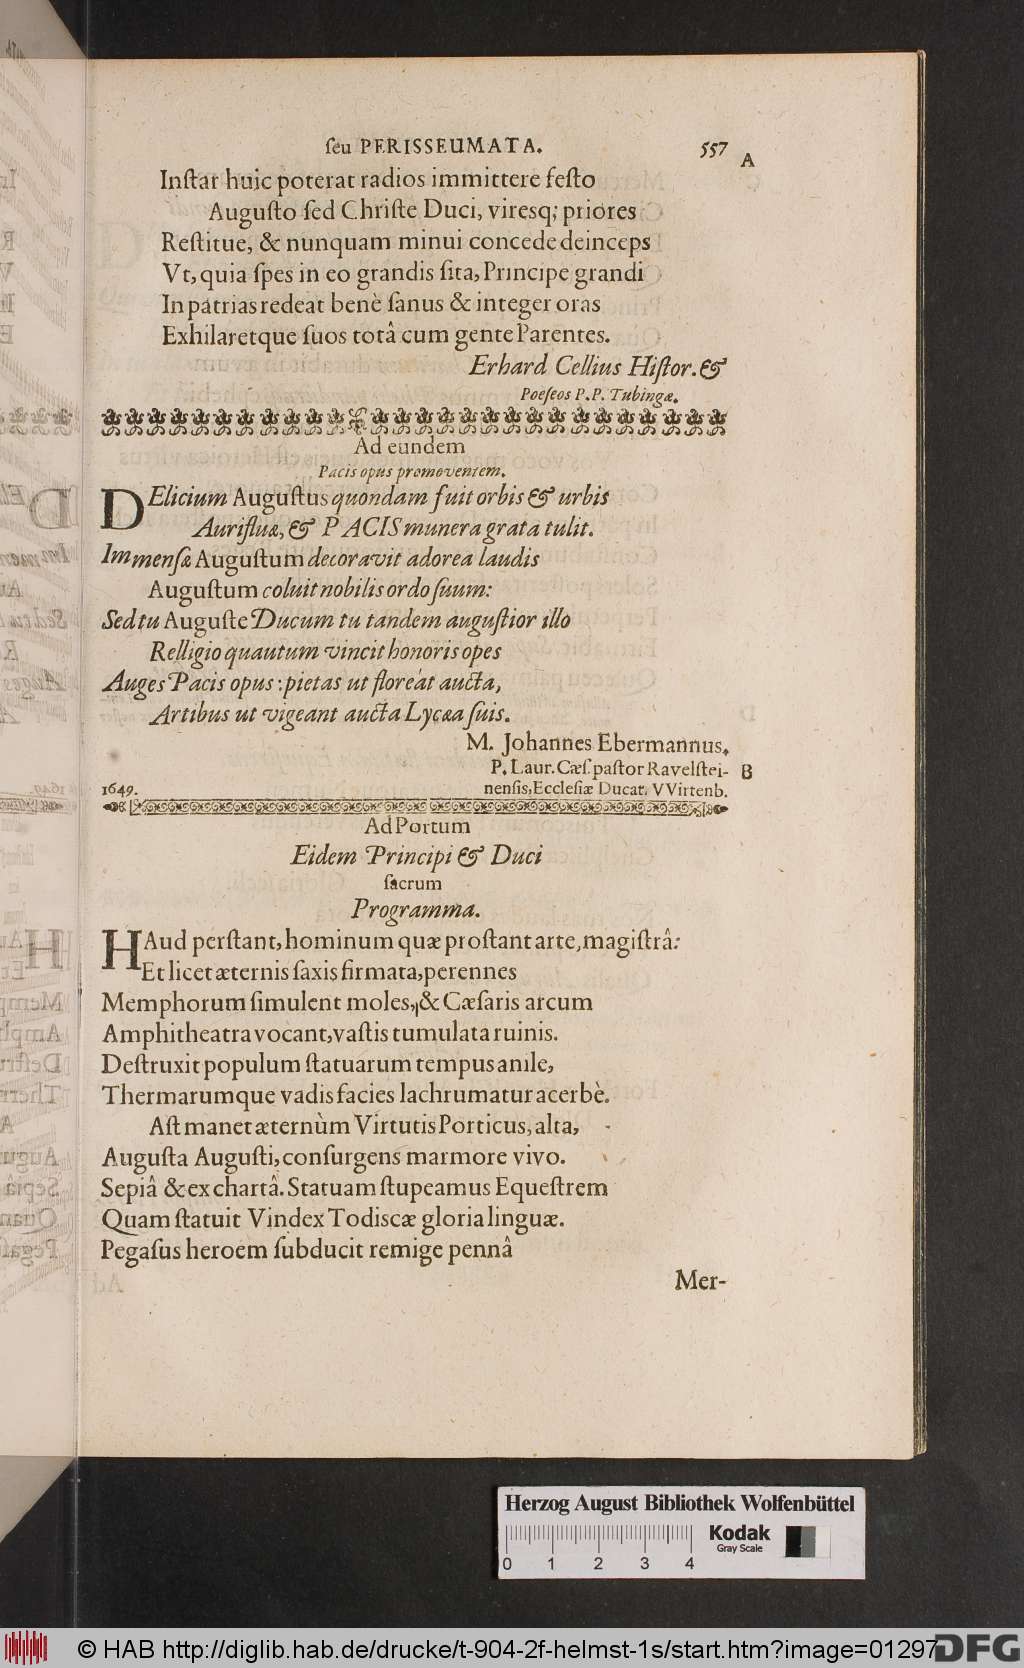 ſeu PERISSEUMATA. 557
A
Inſtar huic poterat radios immittere feſto
Auguſto ſed Chriſte Duci, viresq; priores
Reſtitue, & nunquam minui concede deinceps
Vt, quia ſpes in eo grandis ſita, Principe grandi
In patrias redeat benè ſanus & integer oras
Exhilaretque ſuos totâ cum gente Parentes.
Erhard Cellius Hiſtor. &
Poeſeos P. P. Tubingæ.
Ad eundem
Pacis opus promoventem.
DElicium Auguſtus quondam fuit orbis & urbis
Aurifluæ, & PACIS munera grata tulit.
Immenſæ Auguſtum decoravit adorea laudis
Auguſtum coluit nobilis ordo ſuum:
Sed tu Auguſte Ducum tu tandem auguſtior illo
Relligio quautum vincit honoris opes
Auges Pacis opus: pietas ut floreat aucta,
Artibus ut vigeant aucta Lycæa ſuis.
M. Johannes Ebermannus,
P. Laur. Cæſ. paſtor Ravelſtei- B
1649. nenſis, Eccleſiæ Ducat. VVirtenb.
Ad Portum
Eidem Principi & Duci
ſacrum
Programma.
HAud perſtant, hominum quæ proſtant arte, magiſtrâ:
Et licet æternis ſaxis firmata, perennes
Memphorum ſimulent moles, & Cæſaris arcum
Amphitheatra vocant, vaſtis tumulata ruinis.
Deſtruxit populum ſtatuarum tempus anile,
Thermarumque vadis facies lachrumatur acerbè.
Aſt manet æternùm Virtutis Porticus, alta,
Auguſta Auguſti, conſurgens marmore vivo.
Sepiâ & ex chartâ. Statuam ſtupeamus Equeſtrem
Quam ſtatuit Vindex Todiscæ gloria linguæ.
Pegaſus heroem ſubducit remige pennâ
Mer-
Herzog August Bibliothek Wolfenbüttel
Kodak
Gray Scale
0 1 2 3 4
© HAB http://diglib.hab.de/drucke/t-904-2f-helmst-1s/start.htm?image=01297
DFG